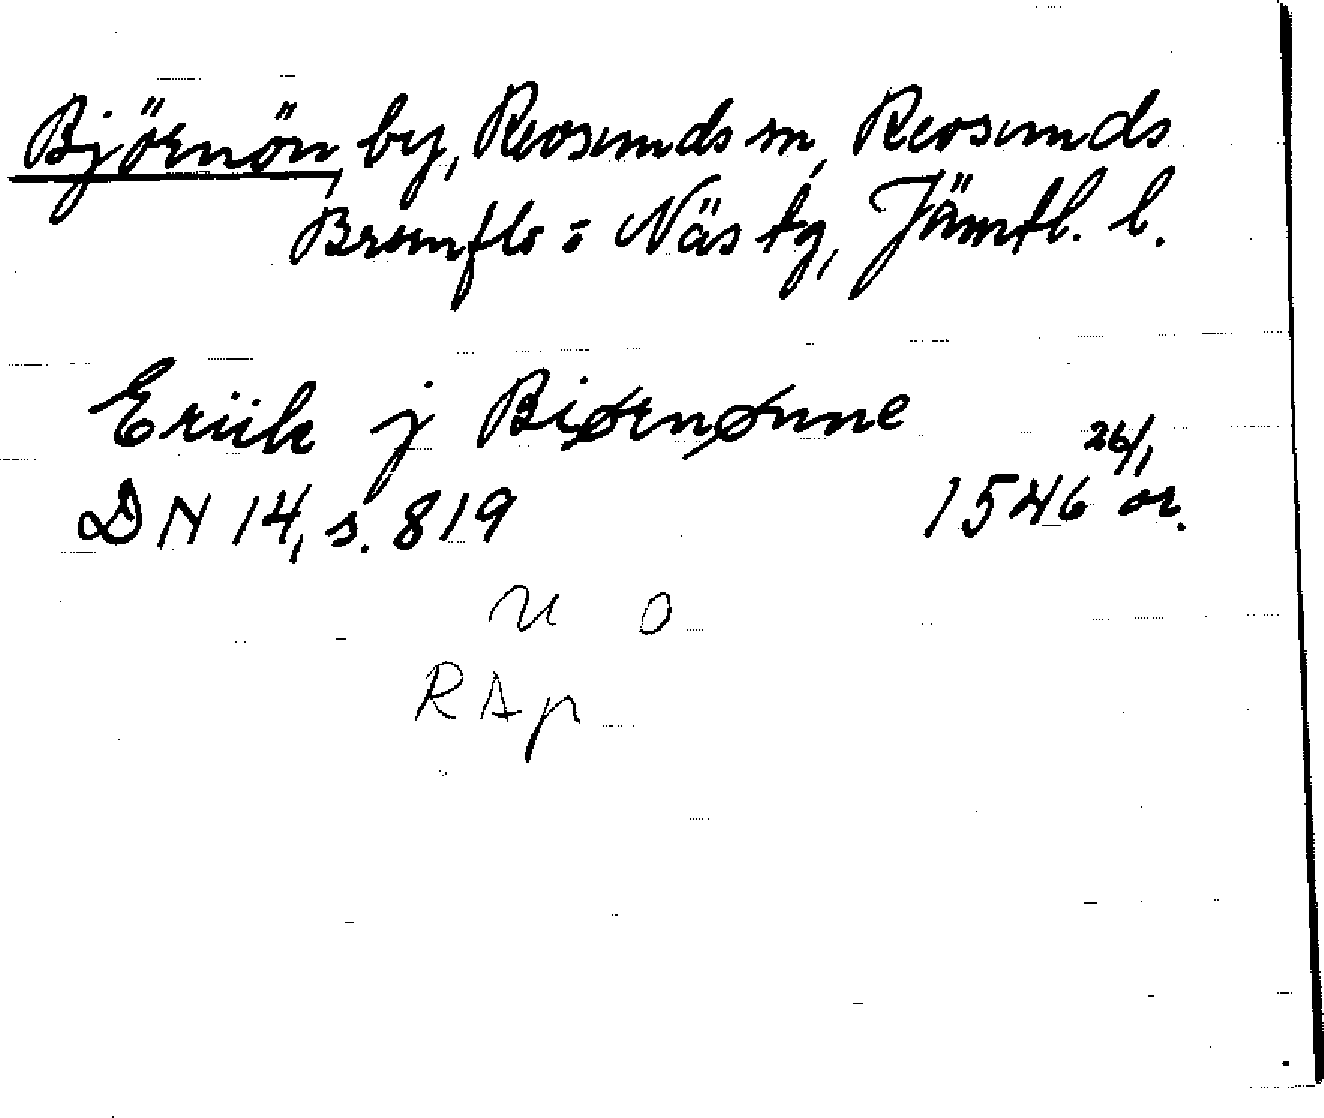 Björnön, by, Revsunds sn, Revsunds
Brunflo = Näs tg, Jämtl. l.
Eriik j Biørnønne
26/1
DN 14, s. 819 1546 or.
U O
RAp